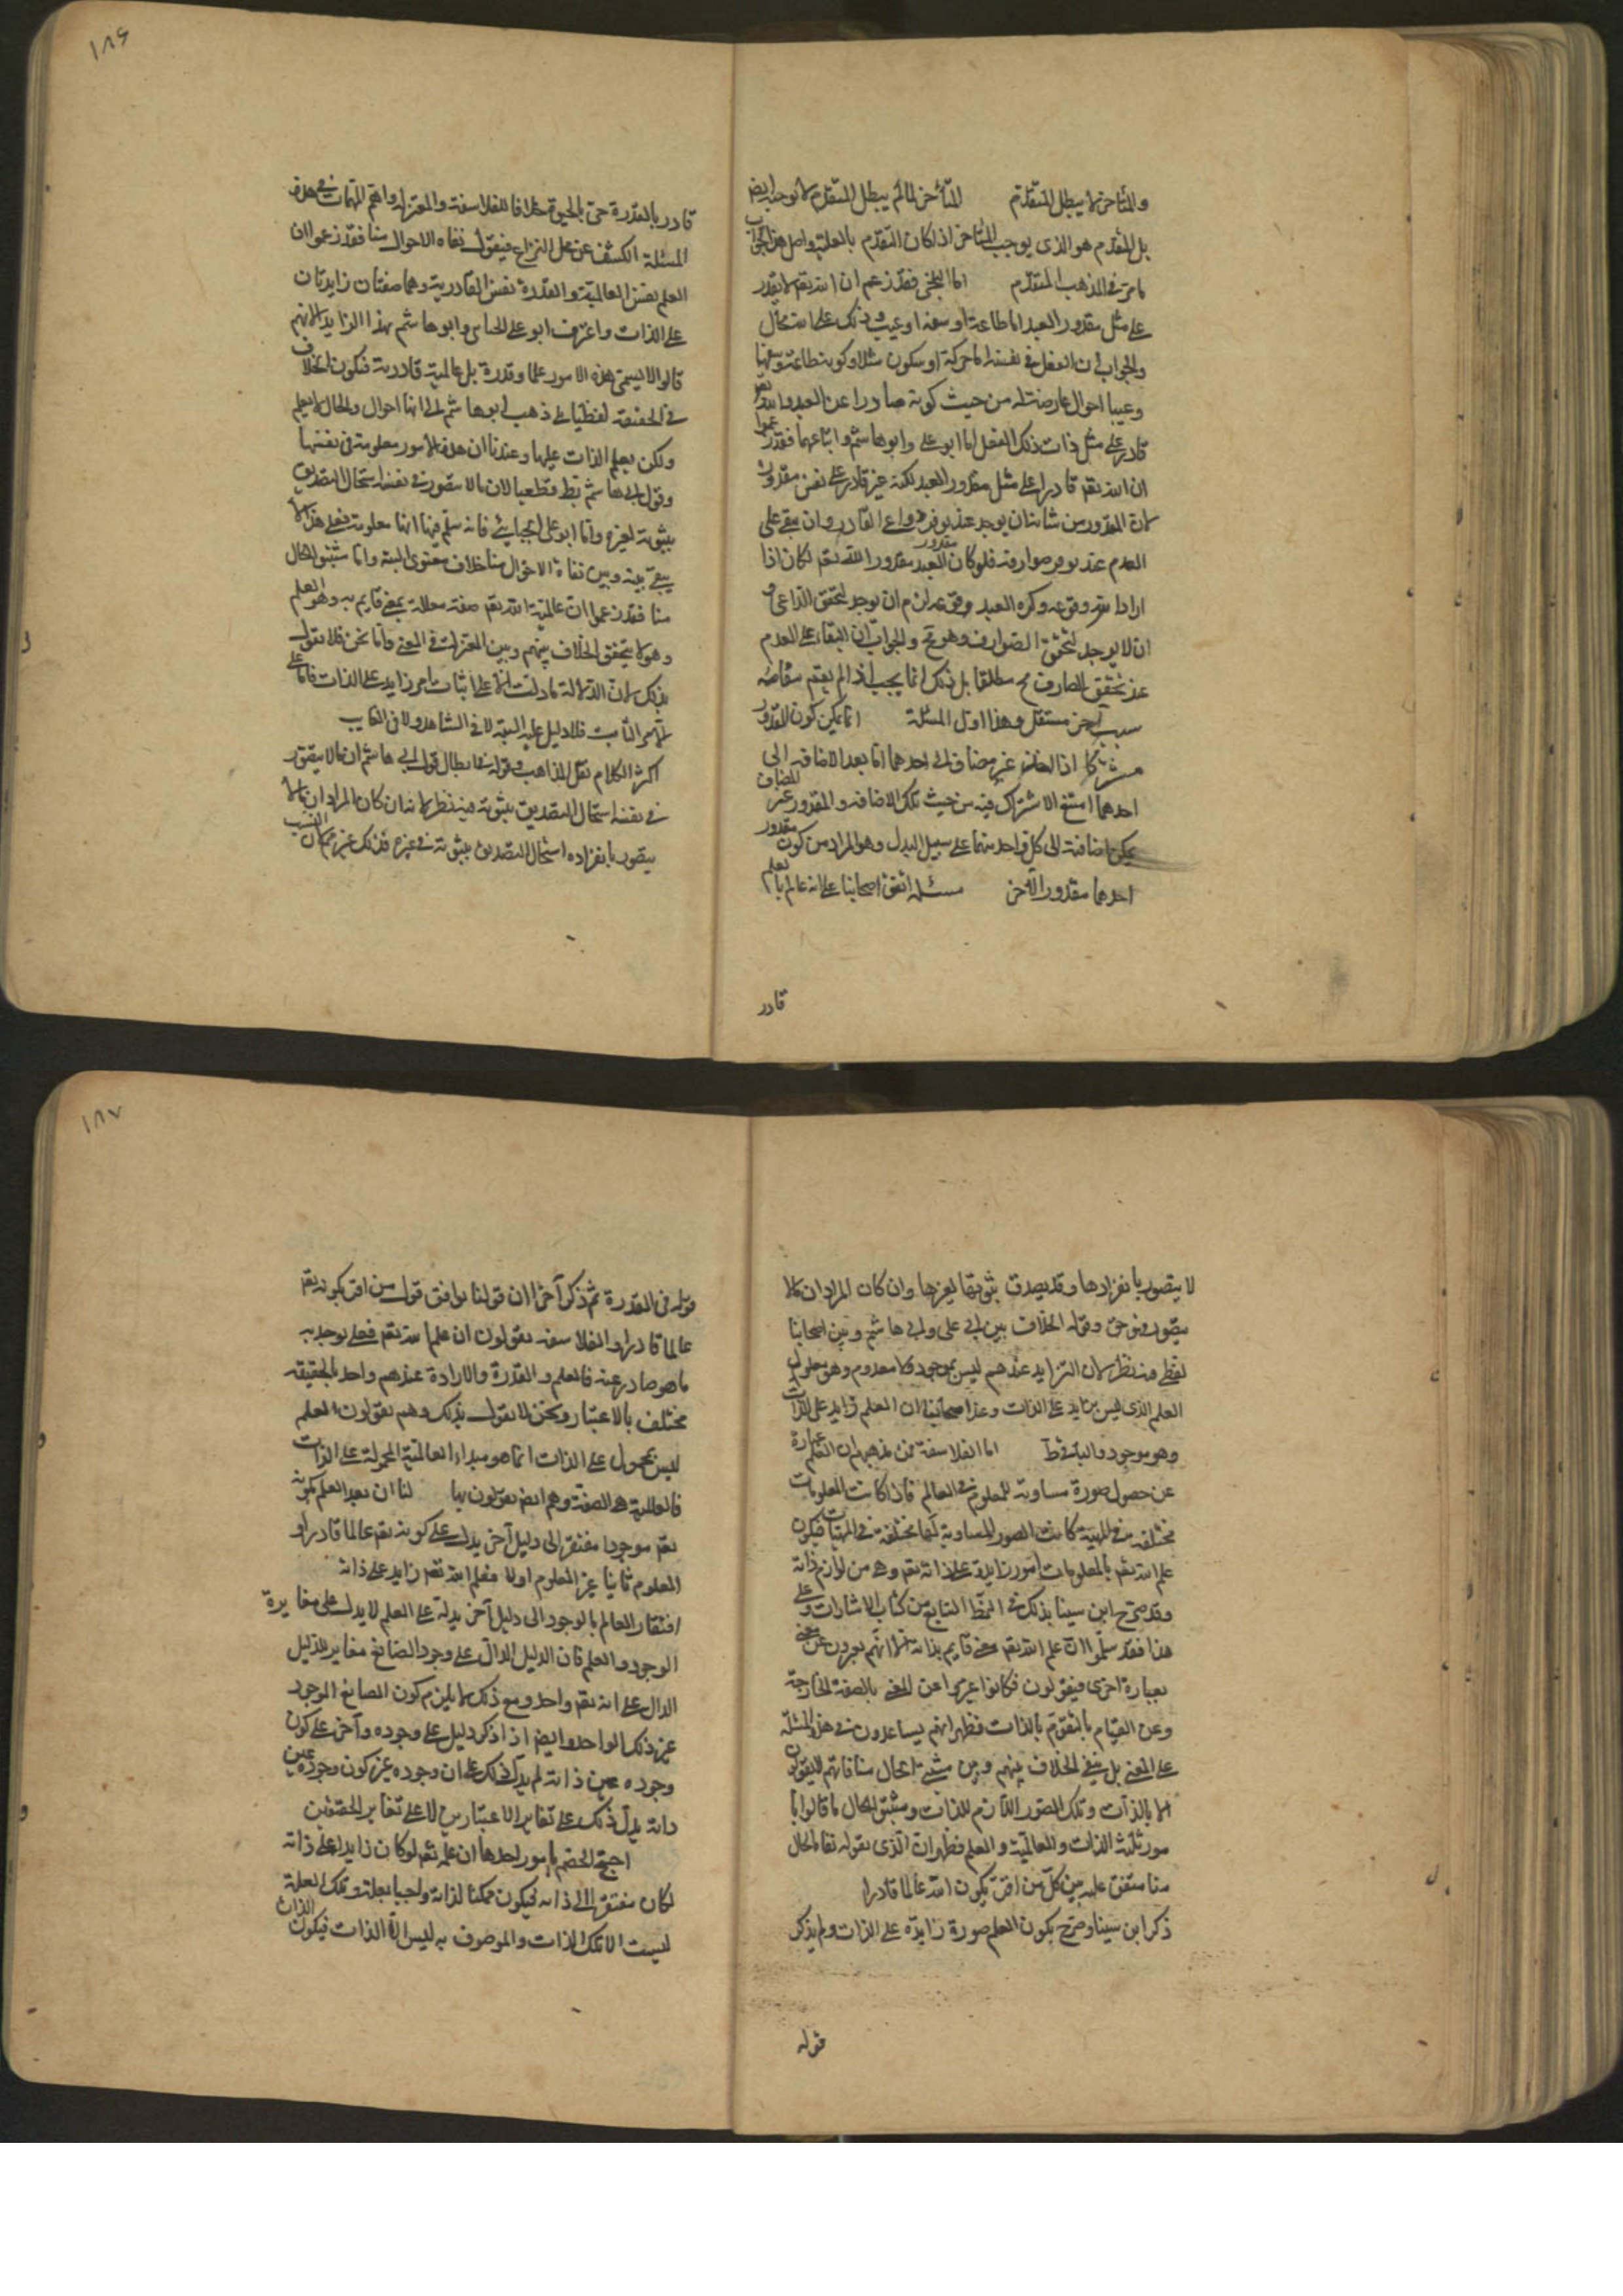 ١٨٦
والمتأخر لا يبطل المتقدم المتأخر لما لم يبطل المتقدم لا يوجبه ايضا
بل المتقدم هو الذى يوجب المتأخر اذا كان التقدم بالعلية واصل هذا الجواب
ما مر فى المذهب المتقدم اما البلخى فقد زعم ان الله تعم لا يقدر
على مثل مقدور العبد اما طاعة او سفه او عبث وذلك على الله محال
والجواب ان الفعل فى نفسه اما حركة او سكون مثلا وكونه طاعة وسفها
وعبثا احوال عارضة له من حيث كونه صادرا عن العبد والله تعم
قادر على مثل ذات ذلك الفعل اما ابو على وابو هاشم واتباعهما فقد زعموا
ان الله تعم قادرا على مثل مقدور العبد لكنه غير قادر على نفس مقدوره
لان المقدور من شانه ان يوجد عند توفر دواعى القادر وان يبقى على
العدم عند توفر صوارفه فلو كان مقدور العبد مقدورا لله تعم لكان اذا
اراد الله وقوعه وكره العبد وقوعه لزم ان يوجد لتحقق الداعى و
ان لا يوجد لتحقق الصوارف وهو مح والجواب ان البقاء على العدم
عند تحقق الصارف مح مطلقا بل ذلك انما يجب اذا لم يقم مقامه
سبب آخر مستقل وهذا اول المسئلة انما يمكن كون المقدور
مشتركا اذا اخذ غير مضاف الى احدهما اما بعد الاضافة الى
احدهما امتنع الاشتراك فيه من حيث تلك الاضافة والمقدور غير المضاف
يمكن اضافته الى كل واحد منهما على سبيل البدل وهو المراد من كون مقدور
احدهما مقدور الآخر مسئلة اتفق اصحابنا على انه عالم بالعلم
قادر
قادر بالقدرة حى بالحيوة خلافا للفلاسفة والمعتزلة واهم المهمات فى هذه
المسئلة الكشف عن محل النزاع فنقول نفاة الاحوال منا فقد زعموا ان
العلم نفس العالمية والقدرة نفس القادرية وهما صفتان زايدتان
على الذات واعترف ابو على الجبائى وابو هاشم بهذا الزايد الا انهم
قالوا لا يسمى هذه الامور علما وقدرة بل عالمية قادرية فيكون الخلاف
فى الحقيقة لفظيا بلى ذهب ابو هاشم الى انها احوال والحال لا يعلم
ولكن يعلم الذات عليها وعندنا ان هذه الامور معلومة فى نفسها
وقول ابى هاشم بط قطعيا لان ما لا يتصور فى نفسه استحال التصديق
بثبوته لغيره واما ابو على الجبايئ فانه سلم فيها انها معلومة فعلى هذا لا
يبقى بينه وبين نفاة الاحوال منا خلاف معنوى البتة واما مثبتو الحال
منا فقد زعموا ان عالمية الله تعم صفة معللة بمعنى قايم به وهو العلم
وهولا يتحقق الخلاف بينهم وبين المعتزلة فى المعنى واما نحن فلا نقول
بذلك لان الدلالة ما دلت الا على اثبات امر زايد على الذات فاما على
الامر الثالث فلا دليل عليه البتة لا فى الشاهد ولا فى الغايب
اكثر الكلام نقل المذاهب وقوله فى ابطال قول ابى هاشم ان ما لا يتصور
فى نفسه استحال التصديق بثبوته فيه نظر لانه ان كان المراد ان ما لا
يتصور بانفراده استحال التصديق بثبوته فى غيره فذلك غير مم لان النسب
١٨٧
لا يتصور بانفرادها وقد يصدق بثبوتها لغيرها وان كان المراد ان ما لا
يتصور فهو حق وقوله الخلاف بين ابى على وابى هاشم وبين اصحابنا
لفظى فيه نظر لان الزايد عندهم ليس بموجود ولا معدوم وهو معلول
العلم الذى ليس بزايد على الذات وعند اصحابنا ان العلم زايد على الذات
وهو موجود والباقى ظ اما الفلاسفة فمن مذهبهم ان العلم عبارة
عن حصول صورة مساوية للمعلوم فى العالم فاذا كانت المعلومات
مختلفة فى المهية كانت الصور المساوية لها مختلفة فى المهيات فيكون
علم الله تعم بالمعلومات امور زايدة على ذاته تعم وهى من لوازم ذاته
وقد صرح ابن سينا بذلك فى النمط السابع من كتاب الاشارات وعلى
هذا فقد سلموا ان علم الله تعم معنى قايم بذاته الا انهم يعبرون عن معنى
بعبارة اخرى فيقولون فكانوا عبروا عن المعنى بالصفة الخارجة
وعن القيام بالتقوم بالذات فظهر انهم يساعدون فى هذه المسئلة
على المعنى بل بقى الخلاف بينهم وبين مثبتى الحال منا فانهم لا يقولون
الا بالذات وتلك الصور اللازم للذات ومثبتو الحال ما قالوا با
مور ثلثة الذات والعالمية والعلم فظهر ان الذى يقوله نفاة الحال
منا متفق عليه بين كل من اقر بكون الله عالما قادرا
ذكر ابن سينا وصرح بكون العلم صورة زايدة على الذات ولم يذكر
قوله
قوله فى القدرة ثم ذكر آخرا ان قولنا يوافق قول من اقر بكونه تعم
عالما قادرا والفلاسفة يقولون ان علم الله تعم فعلى يوجد به
ما هو صادر عنه فالعلم والقدرة والارادة عندهم واحد بالحقيقة
مختلف بالاعتبار ونحن لا نقول بذلك وهم يقولون العلم
ليس بمحمول على الذات انما هو مبداء العالمية المحمولة على الذات
فالعالمية هى الصفة وهم ايضا يقولون بها لنا ان بعد العلم بكونه
تعم موجودا مفتقر الى دليل آخر يدل على كونه تعم عالما قادرا و
المعلوم ثانيا غير المعلوم اولا فعلم الله تعم زايد على ذاته
افتقار العالم بالوجود الى دليل آخر يدل على العلم لا يدل على مغايرة
الوجود والعلم فان الدليل الدال على وجود الصانع مغاير للدليل
الدال على انه تعم واحد ومع ذلك لا يلزم كون الصانع الموجود
غير ذلك الواحد وايضا اذا ذكر دليل على وجوده وآخر على كون
وجوده عين ذاته لم يدل ذلك على ان وجوده غير كون وجوده عين
ذاته بل يدل ذلك على تغاير الاعتبارين لا على تغاير الحقيقتين
احتج الخصم بامور احدها ان علمه تعم لو كان زايدا على ذاته
لكان مفتقرا الى ذاته فيكون ممكنا لذاته واجبا بعلة وتلك العلة
ليست الا تلك الذات والموصوف به ليس الا الذات فيكون الذات